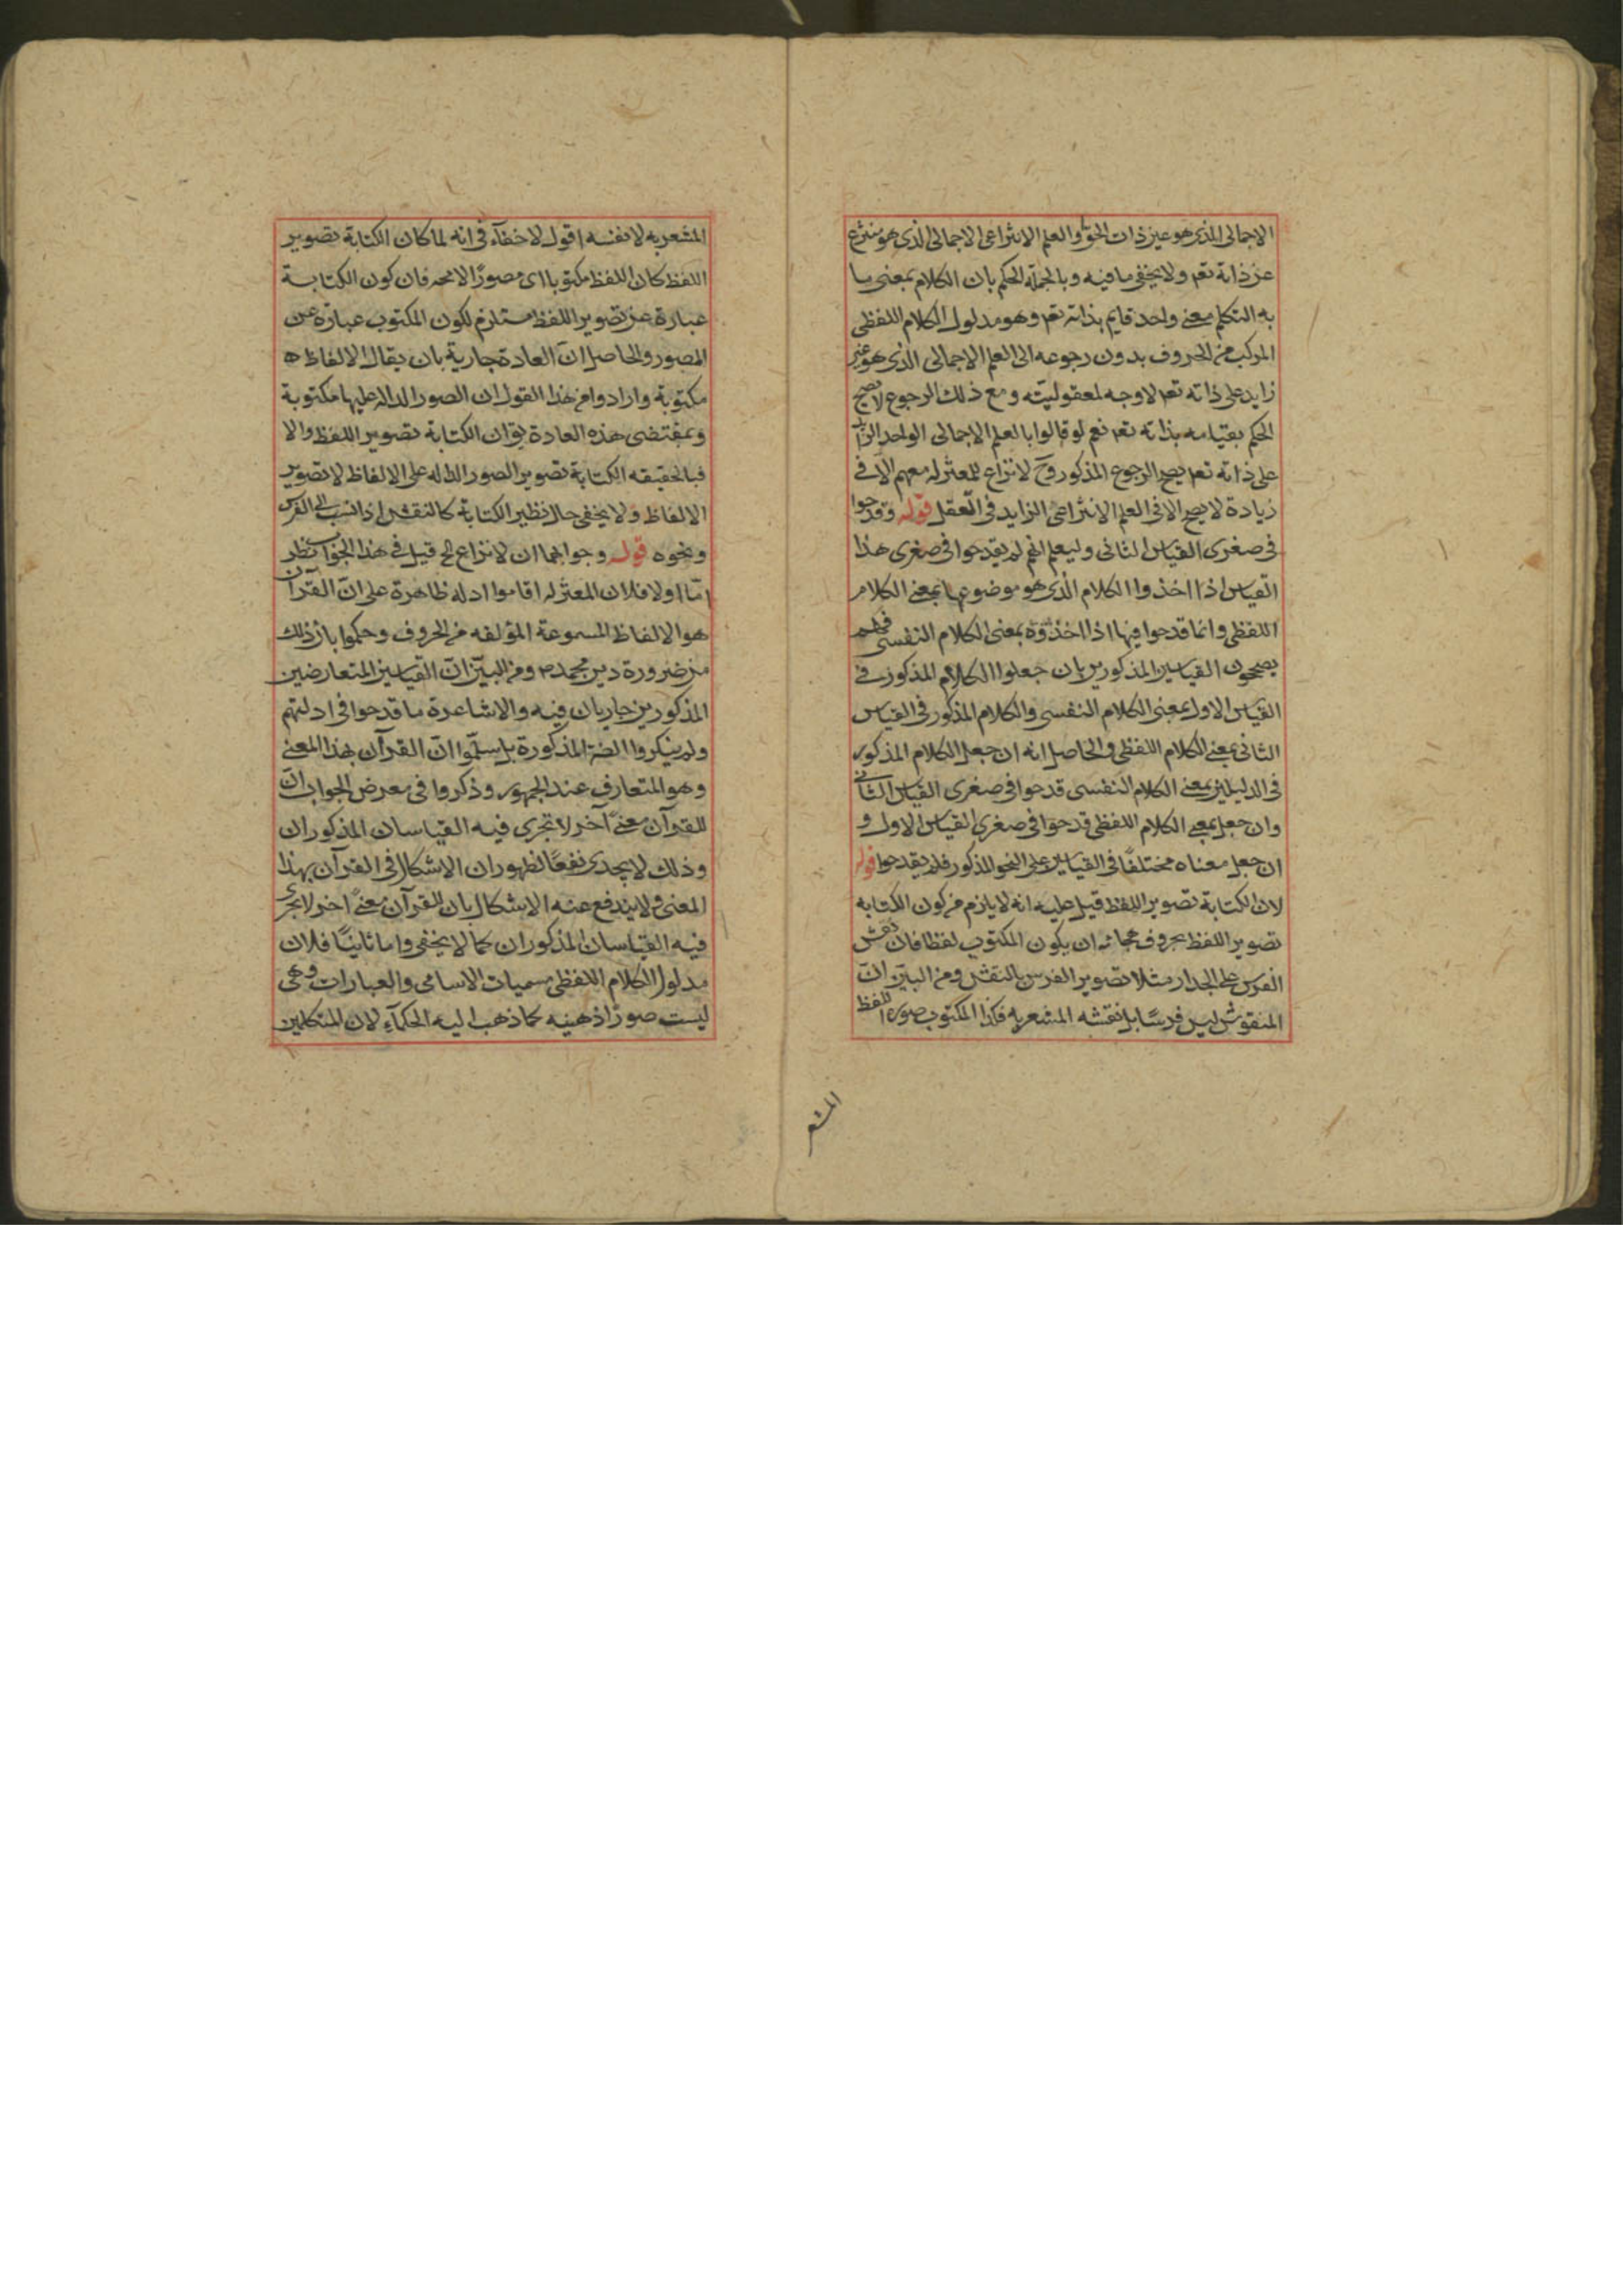 الاجمالی الذی هو عین ذات الحق والعلم الانتزاعی الاجمالی الذی هو منتزع
عن ذاته تعہ ولا یخفی ما فیه وبالجملة الحکم بان الکلام بمعنی ما
به التکلم معنی واحد قایم بذاته تعہ وهو مدلول الکلام اللفظی
المرکب من الحروف بدون رجوعه الی العلم الاجمالی الذی هو غیر
زاید علی ذاته تعہ لا وجه لمعقولیته ومع ذلک الرجوع لا یصح
الحکم بقیامه بذاته تعہ نعم لو قالوا بالعلم الاجمالی الواحد الزاید
علی ذاته تعہ یصح الرجوع المذکور وح لا نزاع للمعتزله معهم الا فی
زیادة لا یصح الا فی العلم الانتزاعی الزاید فی العقل قوله وقدحوا
فی صغری القیاس الثانی ولیعلم انهم لم یقدحوا فی صغری هذا
القیاس اذا اخذوا الکلام الذی هو موضوعها بمعنی الکلام
اللفظی وانما قدحوا فیها اذا اخذوه بمعنی الکلام النفسی فهم
یصححون القیاسین المذکورین بان جعلوا الکلام المذکور فی
القیاس الاول بمعنی الکلام النفسی والکلام المذکور فی القیاس
الثانی بمعنی الکلام اللفظی والحاصل انه ان جعل الکلام المذکور
فی الدلیلین بمعنی الکلام النفسی قدحوا فی صغری القیاس الثانی
وان جعل بمعنی الکلام اللفظی قدحوا فی صغری القیاس الاول و
ان جعل معناه مختلفًا فی القیاسین علی النحو المذکور فلم یقدحوا قوله
لان الکتابة تصویر اللفظ قیل علیه انه لا یلزم من کون الکتابه
تصویر اللفظ بحروف هجائه ان یکون المکتوب لفظا فان نقش
الفرس علی الجدار مثلا تصویر الفرس بالنقش ومن البیّن انّ
المنقوش لیس فرسًا بل نقشه المشعر به فکذا المکتوب صورة اللفظ
المشعر
المشعر به لا نفسه اقول لا خفاء فی انه لما کان الکتابة تصویر
اللفظ کان اللفظ مکتوبا ای مصورًا لا محہ فان کون الکتابة
عبارة عن تصویر اللفظ مستلزم لکون المکتوب عبارة عن
المصور والحاصل انّ العادة جاریة بان یقال الالفاظ
مکتوبة وارادوا من هذا القول ان الصور الداله علیها مکتوبة
وبمقتضی هذه العادة یق ان الکتابة تصویر اللفظ والا
فبالحقیقه الکتابة تصویر الصور الداله علی الالفاظ لا تصویر
الالفاظ ولا یخفی حال نظیر الکتابة کالنقش اذا نسب الی الفرس
ونحوه قوله وجوابهما ان لا نزاع الخ قیل فی هذا الجواب نظر
امّا اولا فلان المعتزله اقاموا ادله ظاهرة علی انّ القرآن
هو الالفاظ المسموعة المؤلفه من الحروف وحکموا بان ذلک
من ضرورة دین محمد ص ومن البیّن انّ القیاسین المتعارضین
المذکورین جاریان فیه والاشاعرة ما قدحوا فی ادلتهم
ولم ینکروا الضرة المذکورة بل سلّموا انّ القرآن بهذا المعنی
وهو المتعارف عند الجمهور وذکروا فی معرض الجواب انّ
للقرآن معنیً آخر لا تجری فیه القیاسان المذکوران
وذلک لا یجدی نفعًا لظهور ان الاشکال فی القرآن بهذا
المعنی ولا یندفع عنه الاشکال بان للقرآن معنیً آخر لا یجری
فیه القیاسان المذکوران کما لا یخفی واما ثانیًا فلان
مدلول الکلام اللفظی مسمیات الاسامی والعبارات وهی
لیست صورًا ذهنیه کما ذهب الیه الحکماء لان المتکلمین